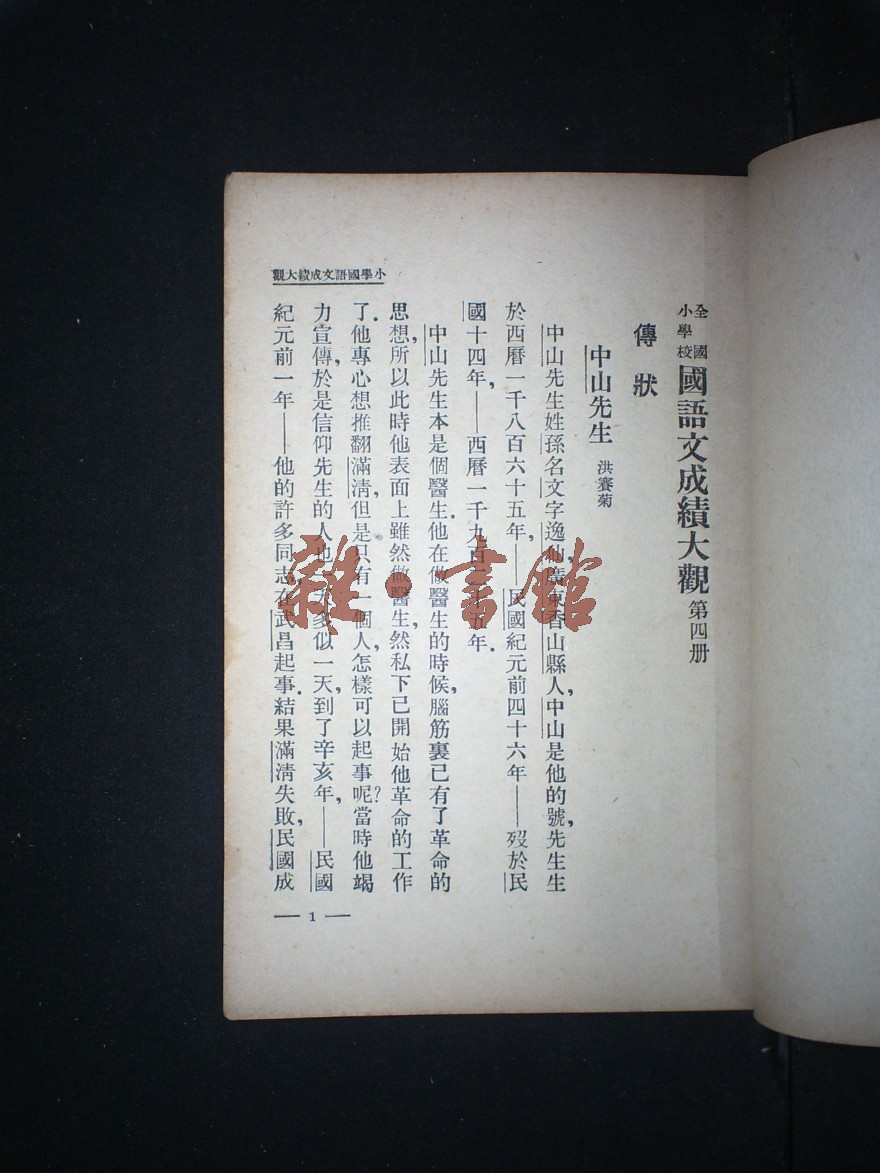 全國
小學校
國語文成績大觀 第四册
傳狀
中山先生 洪賽菊
中山先生姓孫名文字逸仙,廣東香山縣人,中山是他的號,先生生
於西曆一千八百六十五年,——民國紀元前四十六年——歿於民
國十四年,——西曆一千九百二十五年.
中山先生本是個醫生.他在做醫生的時候,腦筋裏已有了革命的
思想,所以此時他表面上雖然做醫生,然私下已開始他革命的工作
了.他專心想推翻滿淸,但是只有一個人,怎樣可以起事呢?當時他竭
力宣傳,於是信仰先生的人也一天多似一天,到了辛亥年,——民國
紀元前一年——他的許多同志在武昌起事.結果滿淸失敗,民國成
小學國語文成績大觀
— 1 —
雜·書館